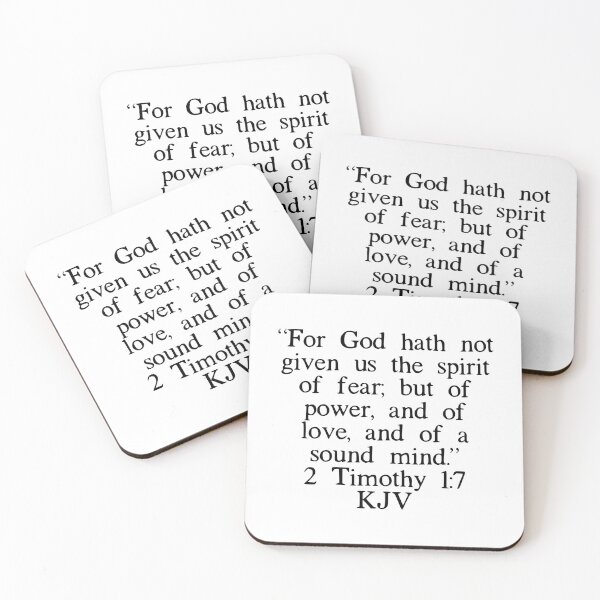 “For God hath not
given us the spirit
of fear; but of
power, and of
of a
1:7
“For God hath not
given us the spirit
of fear; but of
power, and of
love, and of a
sound mind.”
2 Timothy 1:7
“For God hath not
given us the spirit
of fear; but of
power, and of
love, and of a
sound min
2 Timothy
KJV
“For God hath not
given us the spirit
of fear; but of
power, and of
love, and of a
sound mind.”
2 Timothy 1:7
KJV